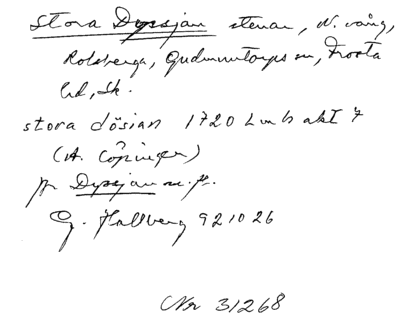 Stora Dyssjan stenar, N. vång,
Rolsberga, Gudmuntorps sn, Frosta
hd, Sk.
stora dösian 1720 Lmb akt 7
(A. Cöpinger)
Dyssjan
G. Hallberg 921026
Nr 31268